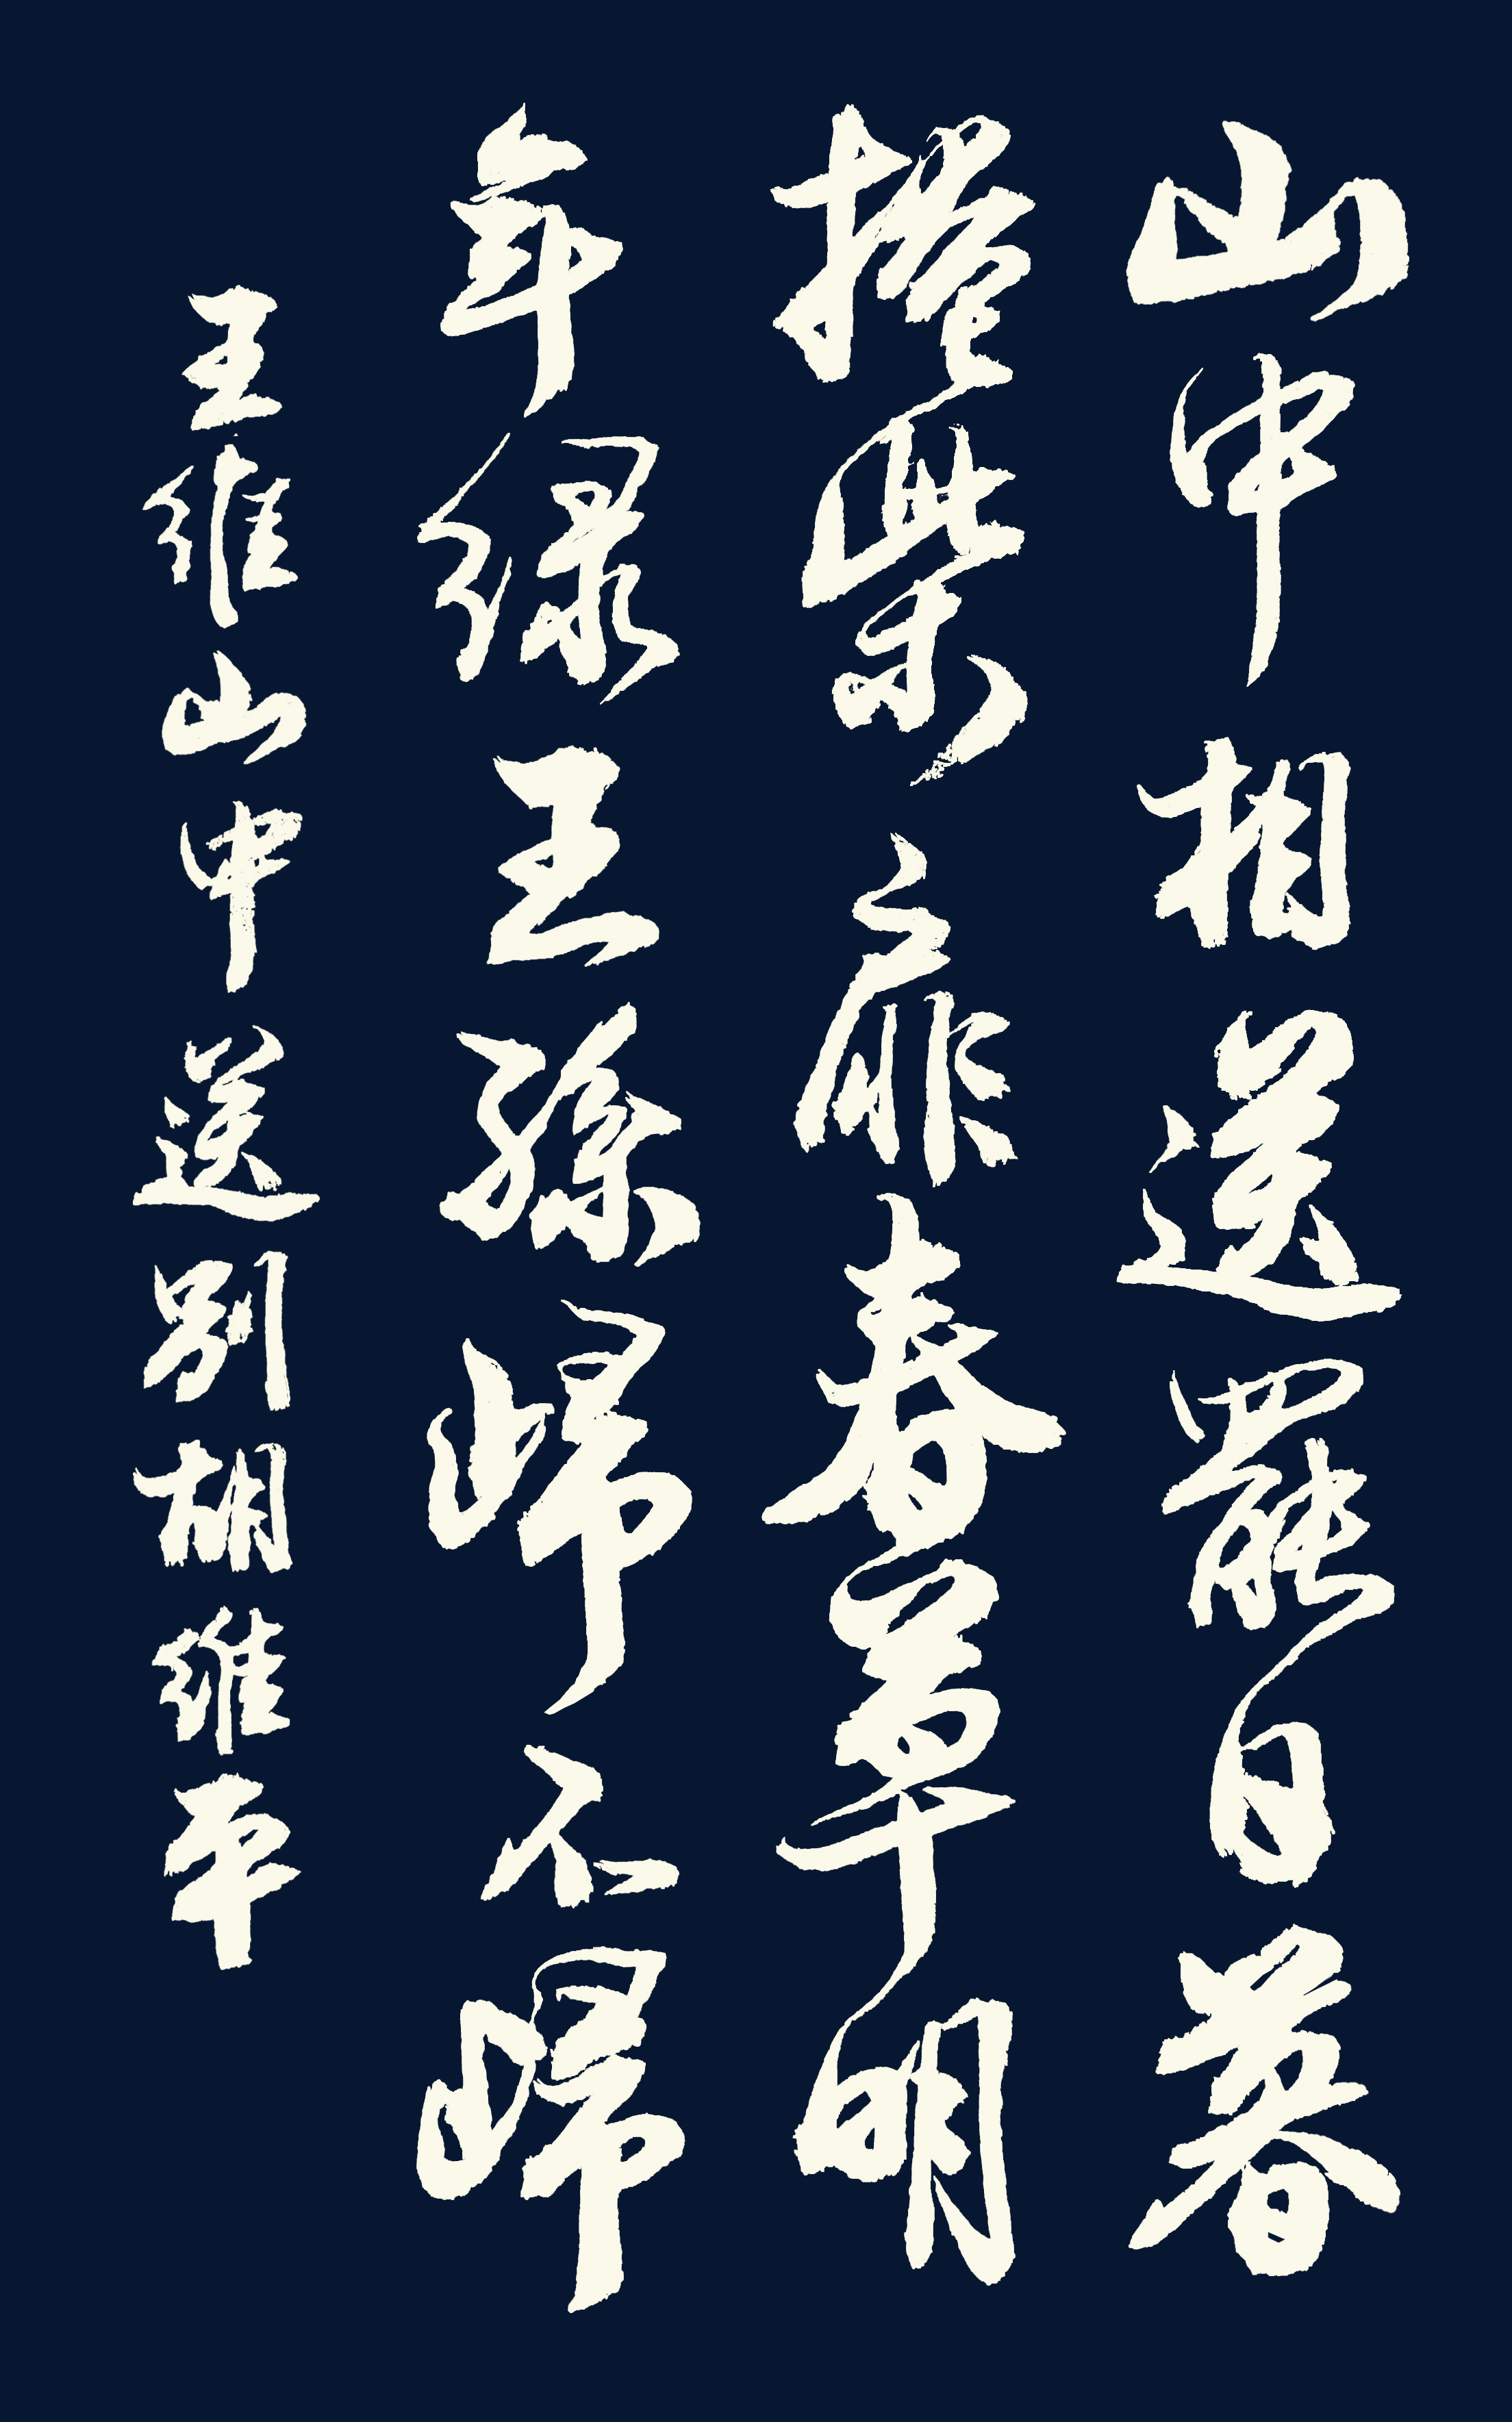 山中相送罷日暮
掩柴扉春草明
年綠王孫歸不歸
王維山中送別胡維